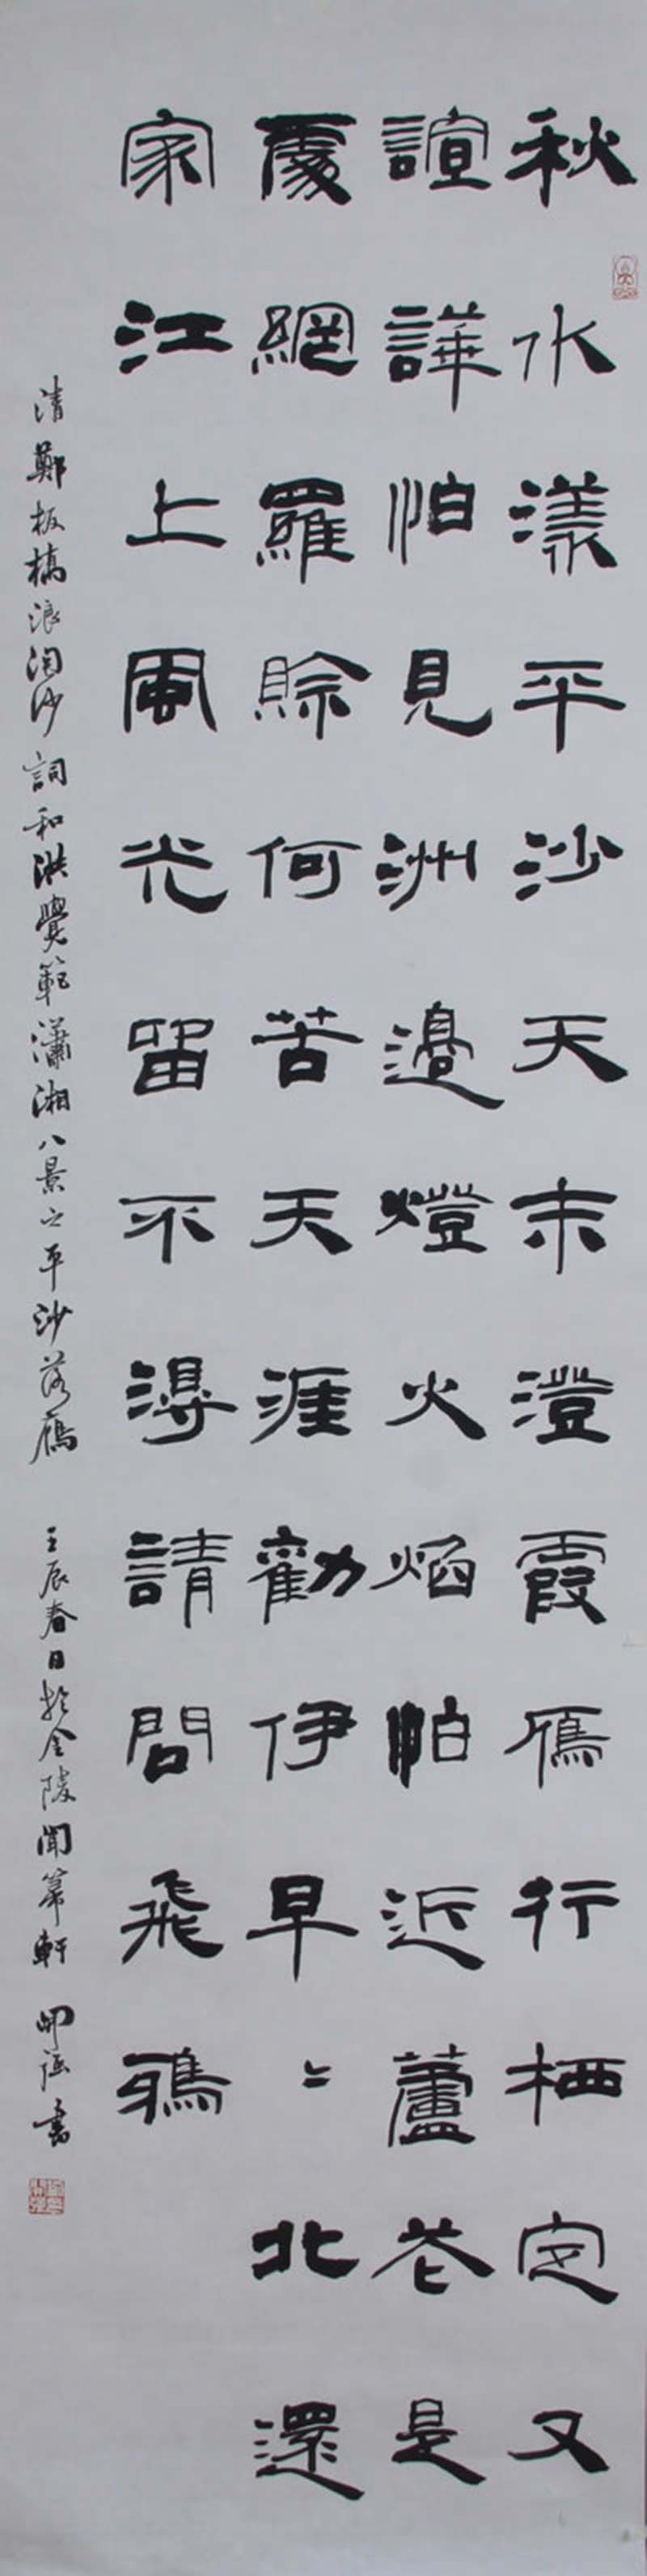 秋水漾平沙天末澄霞雁行栖定又
諠譁怕見洲邊燈火焰怕近蘆花是
處網羅賒何苦天涯勸伊早〻北還
家江上風光留不得請問飛鴉
清鄭板橋浪淘沙詞和洪覺範瀟湘八景之平沙落雁 壬辰春日於金陵聞箫軒 書